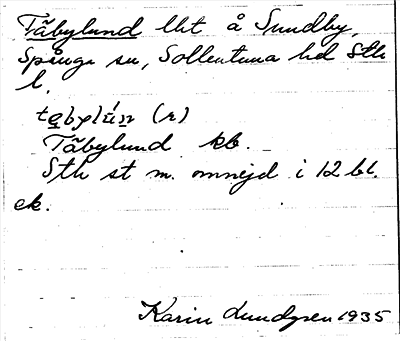 Täbylund lht å Sundby,
Spånga sn, Sollentuna hd Sth
l.
tębylún (r)
Täbylund kb.
Sth st m. omnejd i 12 bl.
ek.
Karin Lundgren 1935